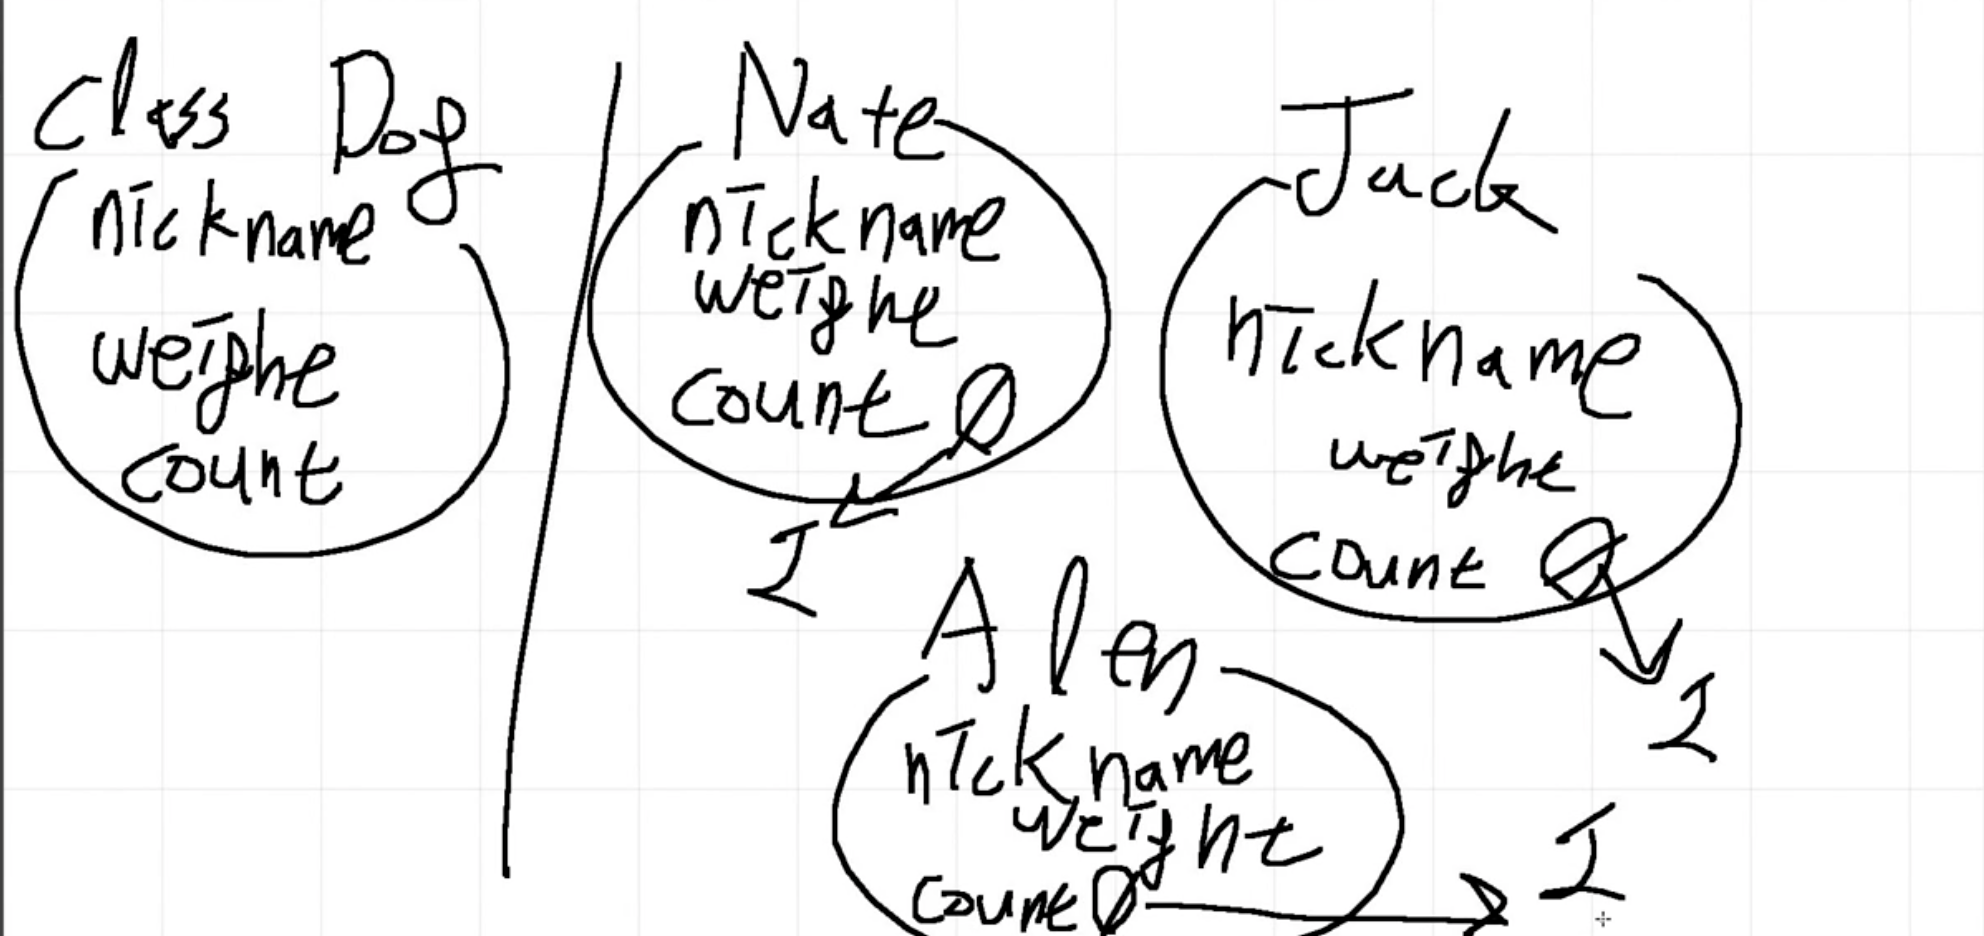 Class Dog
nickname
weight
count
Nate
nickname
weight
count 0
1
Jack
nickname
weight
count 0
1
Alen
nickname
weight
count 0
1